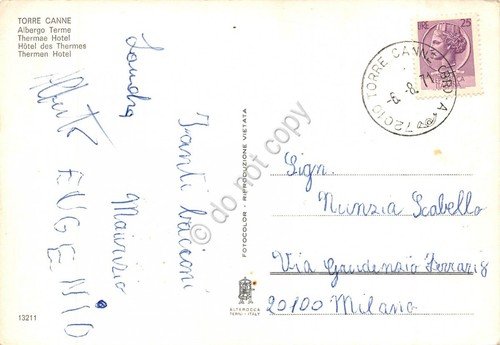 TORRE CANNE
Albergo Terme
Thermae Hotel
Hôtel des Thermes
Thermen Hotel
Sandra
Alberto
EUGENIO
Maurizio
Tanti bacioni
13211
FOTOCOLOR - RIPRODUZIONE VIETATA
ALTEROCCA
TERNI - ITALY
LIRE 25
72010 TORRE CANNE (BR) A
-8. 8. 71
Sign.
Nunzia Scabello
Via Gaudenzio Ferrari 3
20100 Milano
do not copy